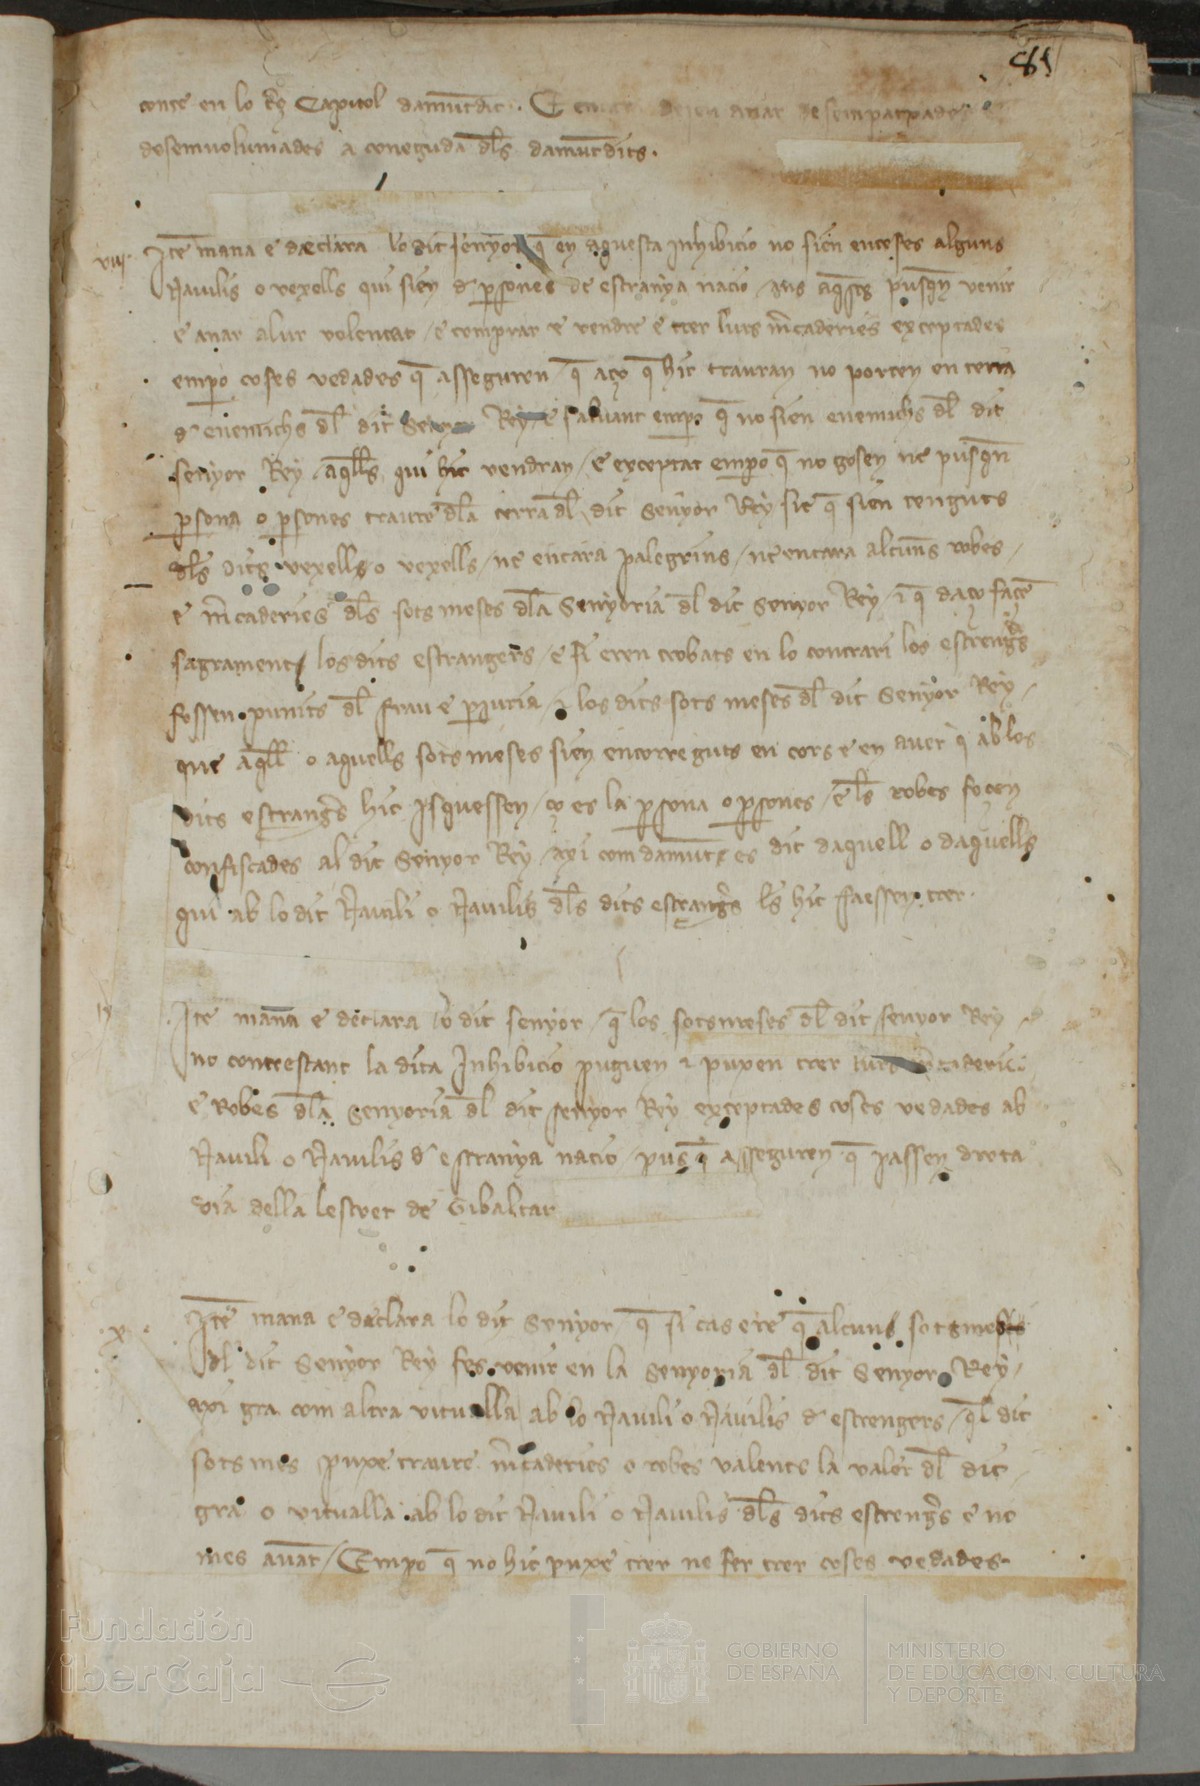 85
conte en lo Capitol damūtdit. E deien anar desempatxades e
desemuolumades a coneguda dl̄s damūtdits.
viij Itē mana e declara lo dit senyor q̄ en aquesta Inhibicio no sien enteses alguns
Nauilis o vexells qui sien d' p̄sones de estranya nacio / ans aq̄sts pusq̄n venir
e anar a lur volentat / e comprar e vendre e trer lurs m̄caderies exceptades
emp̄o coses vedades q̄ asseguren / q̄ aço q̄ hic trauran no porten en terra
d' enemichs dl̄ dit Senyor Rey / e saluant emp̄o q̄ no sien enemichs dl̄ dit
senyor Rey / aq̄lls qui hic vendran / e exceptat emp̄o q̄ no gosen ne pusq̄n
p̄sona o p̄sones traure dl̄a terra dl̄ dit Senyor Rey sie q̄ sien tenguts
dl̄s dits vexells o vexells / ne encara palegrins / ne encara alcuns robes /
e m̄caderies dl̄s sotsmeses dl̄a Senyoria dl̄ dit Senyor Rey / i q̄ daço façē
sagrament los dits estrangers / e si eren trobats en lo contrari los estrengs
fossen punits dl̄ frau e p̄juria / i los dits sotsmeses dl̄ dit Senyor Rey /
que aq̄ll o aquells sotsmeses sien encorreguts en cors e en auer q̄ ab los
dits estrang̃s hic isquessen / ço es la p̄sona o p̄sones / e ls̄ robes foçen
confiscades al dit Senyor Rey / axi com damūt es dit daquell o daquells
qui ab lo dit Nauili o Nauilis dl̄s dits estrang̃s ls̄ hic faessen trer.
ix Itē mana e declara lo dit senyor / q̄ los sotsmeses dl̄ dit senyor Rey
no contrestant la dita Inhibicio puguen i puxen trer lurs m̄caderies
e Robes dl̄a Senyoria dl̄ dit senyor Rey exceptades coses vedades ab
Nauili o Nauilis d' estranya nacio / pus q̄ asseguren q̄ passen dreta
via della lestret de Gibaltar
x Itē mana e declara lo dit Senyor / q̄ si cas ere q̄ alcuns sotsmeses
dl̄ dit Senyor Rey fes venir en la senyoria dl̄ dit Senyor Rey /
axi gra com altra vitualla ab lo Nauili o Nauilis d' estrengers / q̄l dit
sotsmes puxe traure m̄caderies o robes valents la valor dl̄ dit
gra o vitualla ab lo dit Nauili o Nauilis dl̄s dits estreng̃s e no
mes auāt / Emp̄o q̄ no hic puxe trer ne fer trer coses vedades.
Fundación
iberCaja
GOBIERNO
DE ESPAÑA
MINISTERIO
DE EDUCACIÓN, CULTURA
Y DEPORTE